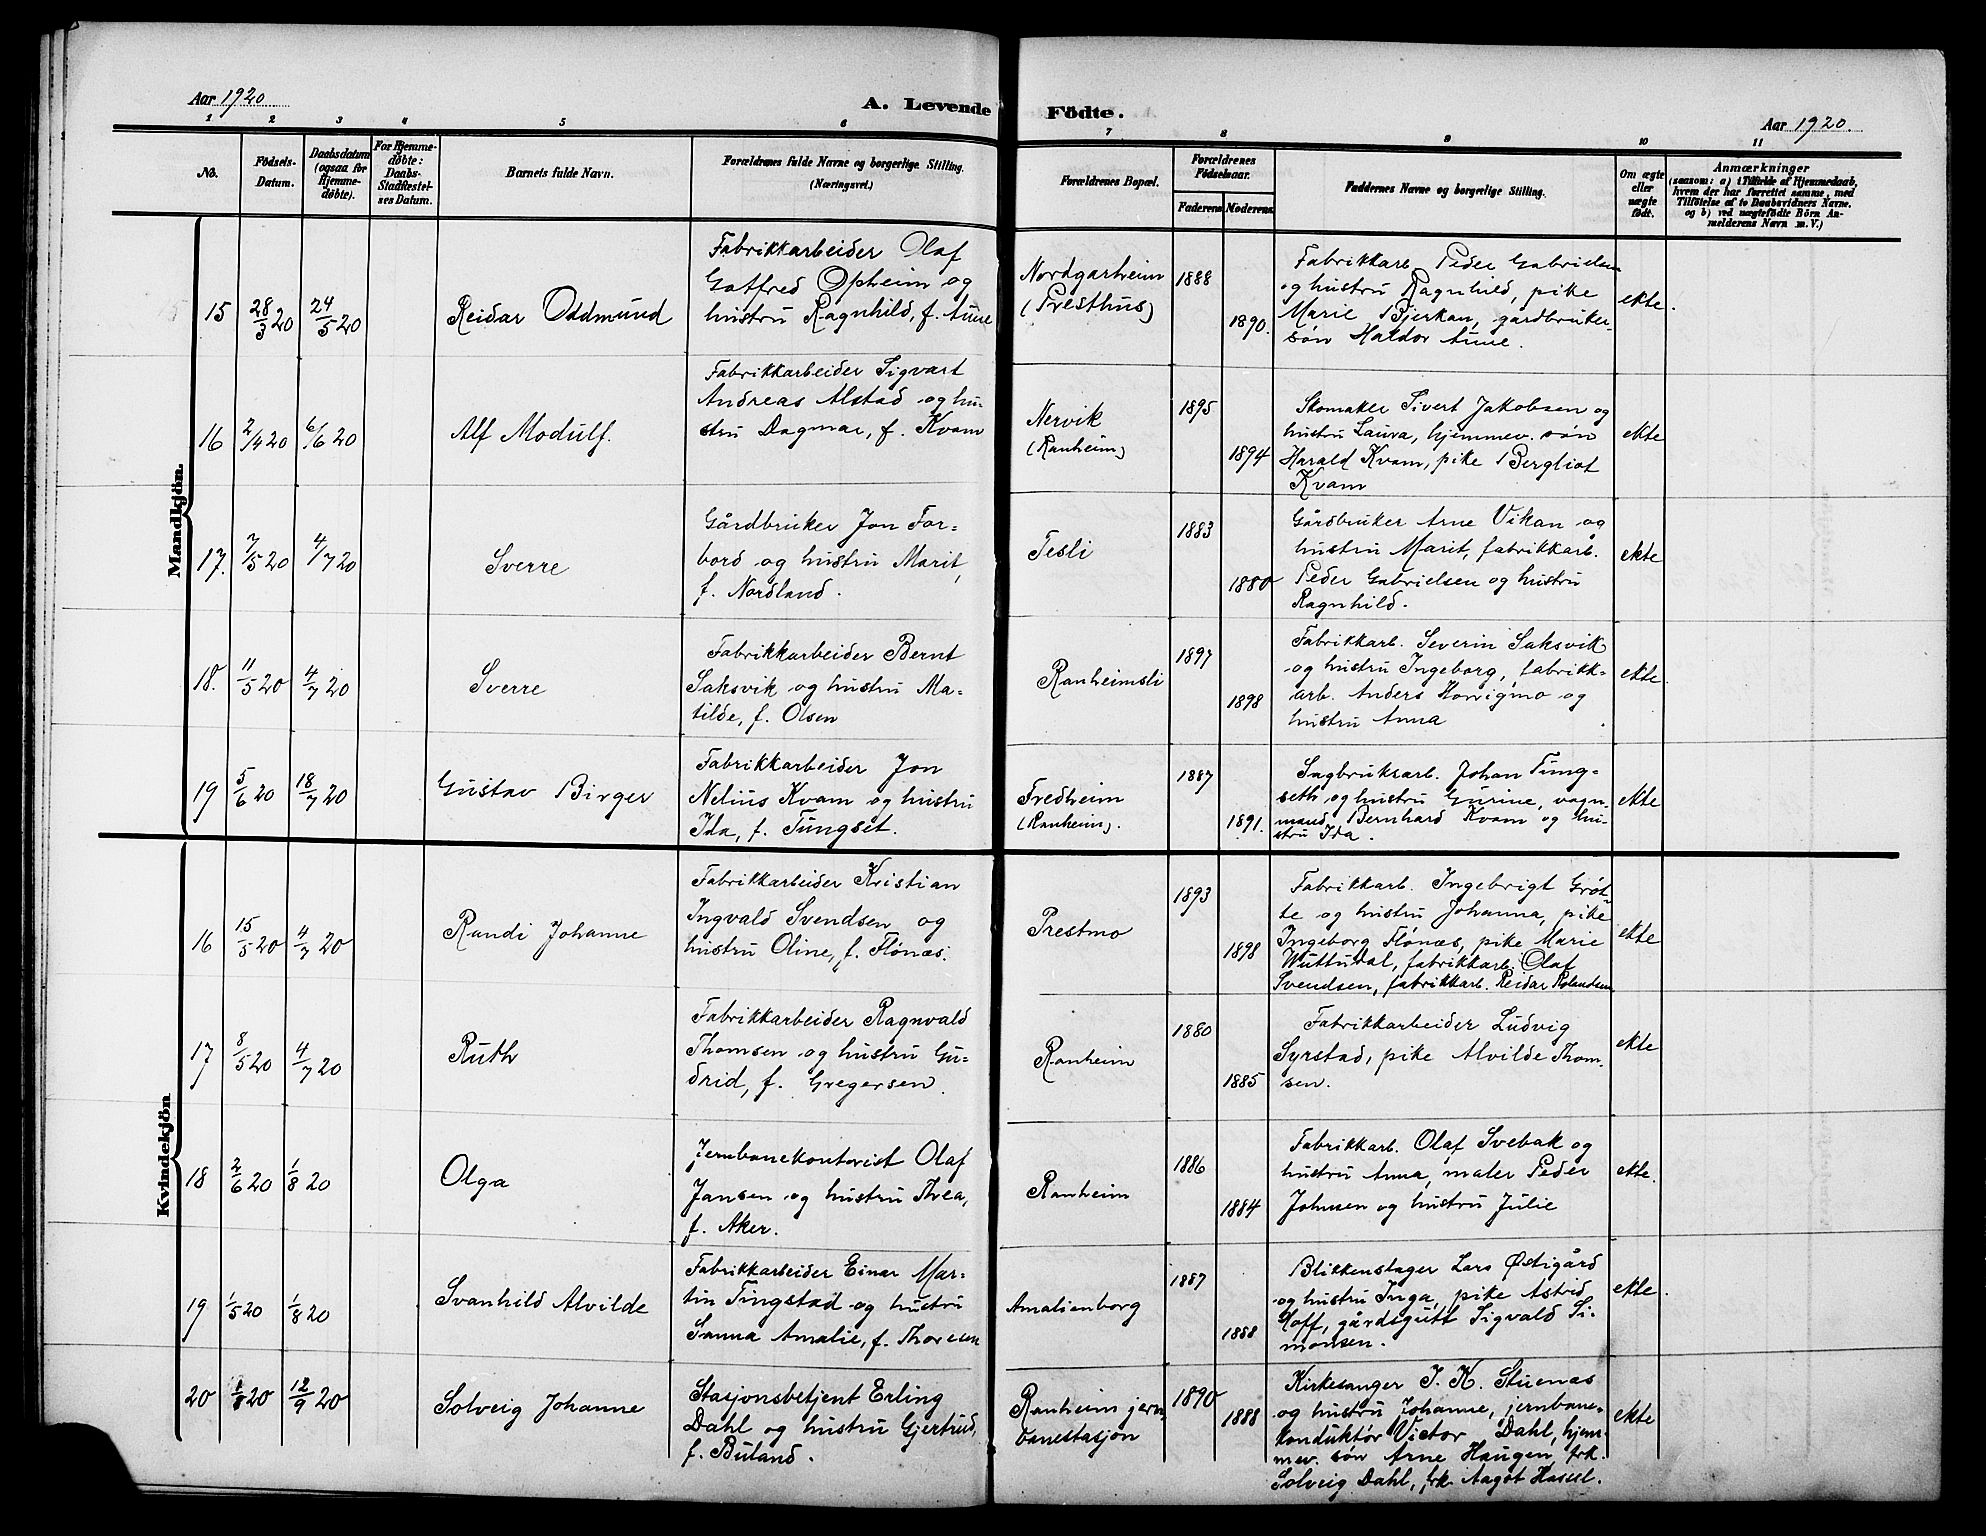 Aar 1920
A. Levende
Födte.
Aar 1920.
1 2 3 4 5 6 7 8 9 10 11
No.
Födsels-
Datum.
Daabsdatum
(ogsaa for
Hjemme-
døbte).
For Hjemme-
døbte:
Daabs-
Stadfæstel-
ses Datum.
Barnets fulde Navn.
Forældrenes fulde Navne og borgerlige Stilling.
(Næringsvei.)
Forældrenes Bopæl.
Forældrenes
Fødselsaar.
Faderens
Moderens
Faddernes Navne og borgerlige Stilling.
Om ægte
eller
uægte
født.
Anmærkninger
(saasom: a) i Tilfælde af Hjemmedaab,
hvem der har forrettet samme, med
Tilføielse af to Daabsvidners Navne.
og b) ved uægtefødte Börn An-
melderens Navn m. V.)
Mandkjön.
15
28/3 20
24/5 20
Reidar Oddmund
Fabrikkarbeider Olaf
Gotfred Opheim og
hustru Ragnhild, f. Aune
Nordgarheim
(Presthus)
1888
1890.
Fabrikkarb. Peder Gabrielsen
og hustru Ragnhild, pike
Marie Bjerkan, gårdbruker-
søn Haldor Aune.
ekte.
16
2/4 20
6/6 20
Alf Modulf.
Fabrikkarbeider Sigvart
Andreas Alstad og hu-
stru Dagmar, f. Kvam
Nervik
(Ranheim)
1895
1894
Skomaker Sivert Jakobsen og
hustru Laura, hjemmev. søn
Harald Kvam, pike Bergliot
Kvam
ekte
17.
7/5 20
4/7 20
Sverre
Gårdbruker Jon For-
bord og hustru Marit,
f. Nordland.
Tesli
1883
1880
Gårdbruker Arne Vikan og
hustru Marit, fabrikkarb.
Peder Gabrielsen og hustru
Ragnhild.
ekte
18.
11/5 20
4/7 20
Sverre
Fabrikkarbeider Bernt
Saksvik og hustru Ma-
tilde, f. Olsen
Ranheimsli
1897
1898
Fabrikkarb. Severin Saksvik
og hustru Ingeborg, fabrikk-
arb. Anders Horrigmo og
hustru Anna
ekte.
19
5/6 20
18/7 20
Gustav Birger
Fabrikkarbeider Jon
Nelius Kvam og hustru
Ida, f. Tungset.
Fredheim
(Ranheim).
1887
1891.
Sagbruksarb. Johan Tung-
seth og hustru Gurine, vogn-
mand Bernhard Kvam og hu-
stru Ida.
ekte
Kvindekjön
16
15/5 20
4/7 20
Randi Johanne
Fabrikkarbeider Kristian
Ingvald Svendsen og
hustru Oline, f. Flønæs.
Prestmo
1893
1898
Fabrikkarb. Ingebrigt Grøt-
te og hustru Johanna, pike
Ingeborg Flønæs, pike Marie
Wuttudal, fabrikkarb. Olaf
Svendsen, fabrikkarb. Reidar Rolandsen
ekte
17
8/5 20
4/7 20
Ruth
Fabrikkarbeider Ragnvald
Thomsen og hustru Gu-
drid, f. Gregersen.
Ranheim
1880
1885
Fabrikkarbeider Ludvig
Syrstad, pike Alvilde Thom-
sen.
ekte
18
2/6 20
1/8 20
Olga
Jernbanekontorist Olaf
Jansen og hustru Thea,
f. Aker.
Ranheim
1886
1884
Fabrikkarb. Olaf Svebak og
hustru Anna, maler Peder
Johnsen og hustru Julie
ekte.
19
1/5 20
1/8 20
Svanhild Alvilde
Fabrikkarbeider Einar Mar-
tin Tingstad og hustru
Sanna Amalie, f. Thorsen
Amalienborg
1887
1888
Blikkenslager Lars Østigård
og hustru Inga, pike Astrid
Hoff, gårdsgutt Sigvald Si-
monsen.
ekte.
20
1/8 20
12/9 20
Solveig Johanne
Stasjonsbetjent Erling
Dahl og hustru Gjertrud,
f. Buland.
Ranheim jern-
banestasjon
1890
1888
Kirkesanger J. K. Stuenæs
og hustru Johanne, jernbane-
konduktør Victor Dahl, hjem-
mev. søn Arne Haugen, frk.
Solveig Dahl, frk. Aagot Hassel.
ekte